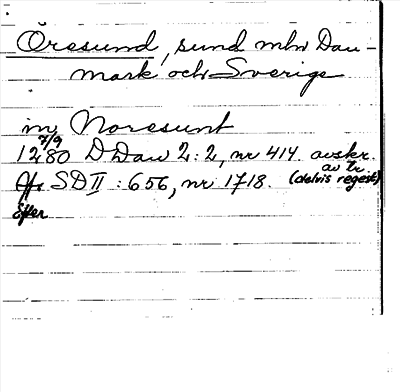 Öresund, sund mln Dan-
mark och Sverige
in Noresunt
7/9
1280 DDan 2:2, nr 414. avskr.
av tr.
Jfr SD II : 656, nr 1718. (delvis regest)
Efter